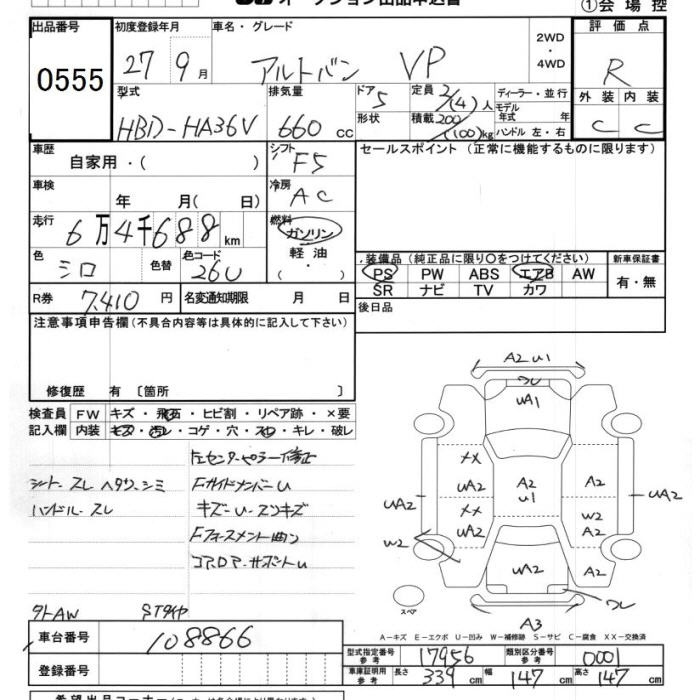 ①会場控
出品番号
0555
初度登録年月
27 9 月
車名・グレード
アルトバン VP
2WD
・
4WD
評価点
R
型式
HBD-HA36V
排気量
660 cc
ドア
5
形状
定員
2/(4)人
積載
200/(100)kg
ディーラー・並行
モデル年式 年
ハンドル 左・右
外装 内装
C C
車歴
自家用・( )
シフト
F5
セールスポイント (正常に機能するものに限ります)
車検
年 月( 日)
冷房
AC
走行
6万4千688km
燃料
ガソリン
軽油
・( )
色
シロ
色替
色コード
26U
装備品(純正品に限り〇をつけてください)
PS PW ABS エアB AW
SR ナビ TV カワ
新車保証書
有・無
R券 7,410 円
名変通知期限 月 日
後日品
注意事項申告欄(不具合内容等は具体的に記入して下さい)
修復歴 有 〔箇所 〕
検査員記入欄
FW キズ・飛石・ヒビ割・リペア跡・×要
内装 キズ・汚レ・コゲ・穴・スレ・キレ・破レ
シート スレ ヘタリ シミ
ハンドル スレ
FガイドメンバーU
キズ-U-エクキズ
Fフォースメント曲り
コアロアサポートU
外AW STタイヤ
A2 U1
ワレ
UA1
XX
UA2
XX
UA2
A2
U1
A2
W2
A2
UA2
UA2
W2
UA2
A2
ワレ
スペア
A3
A-キズ E-エクボ U-凹み W-補修跡 S-サビ C-腐食 XX-交換済
車台番号
108866
登録番号
型式指定番号参考 17956
類別区分番号参考 0001
車庫証明用参考 長さ 339cm 幅 147cm 高さ 147cm